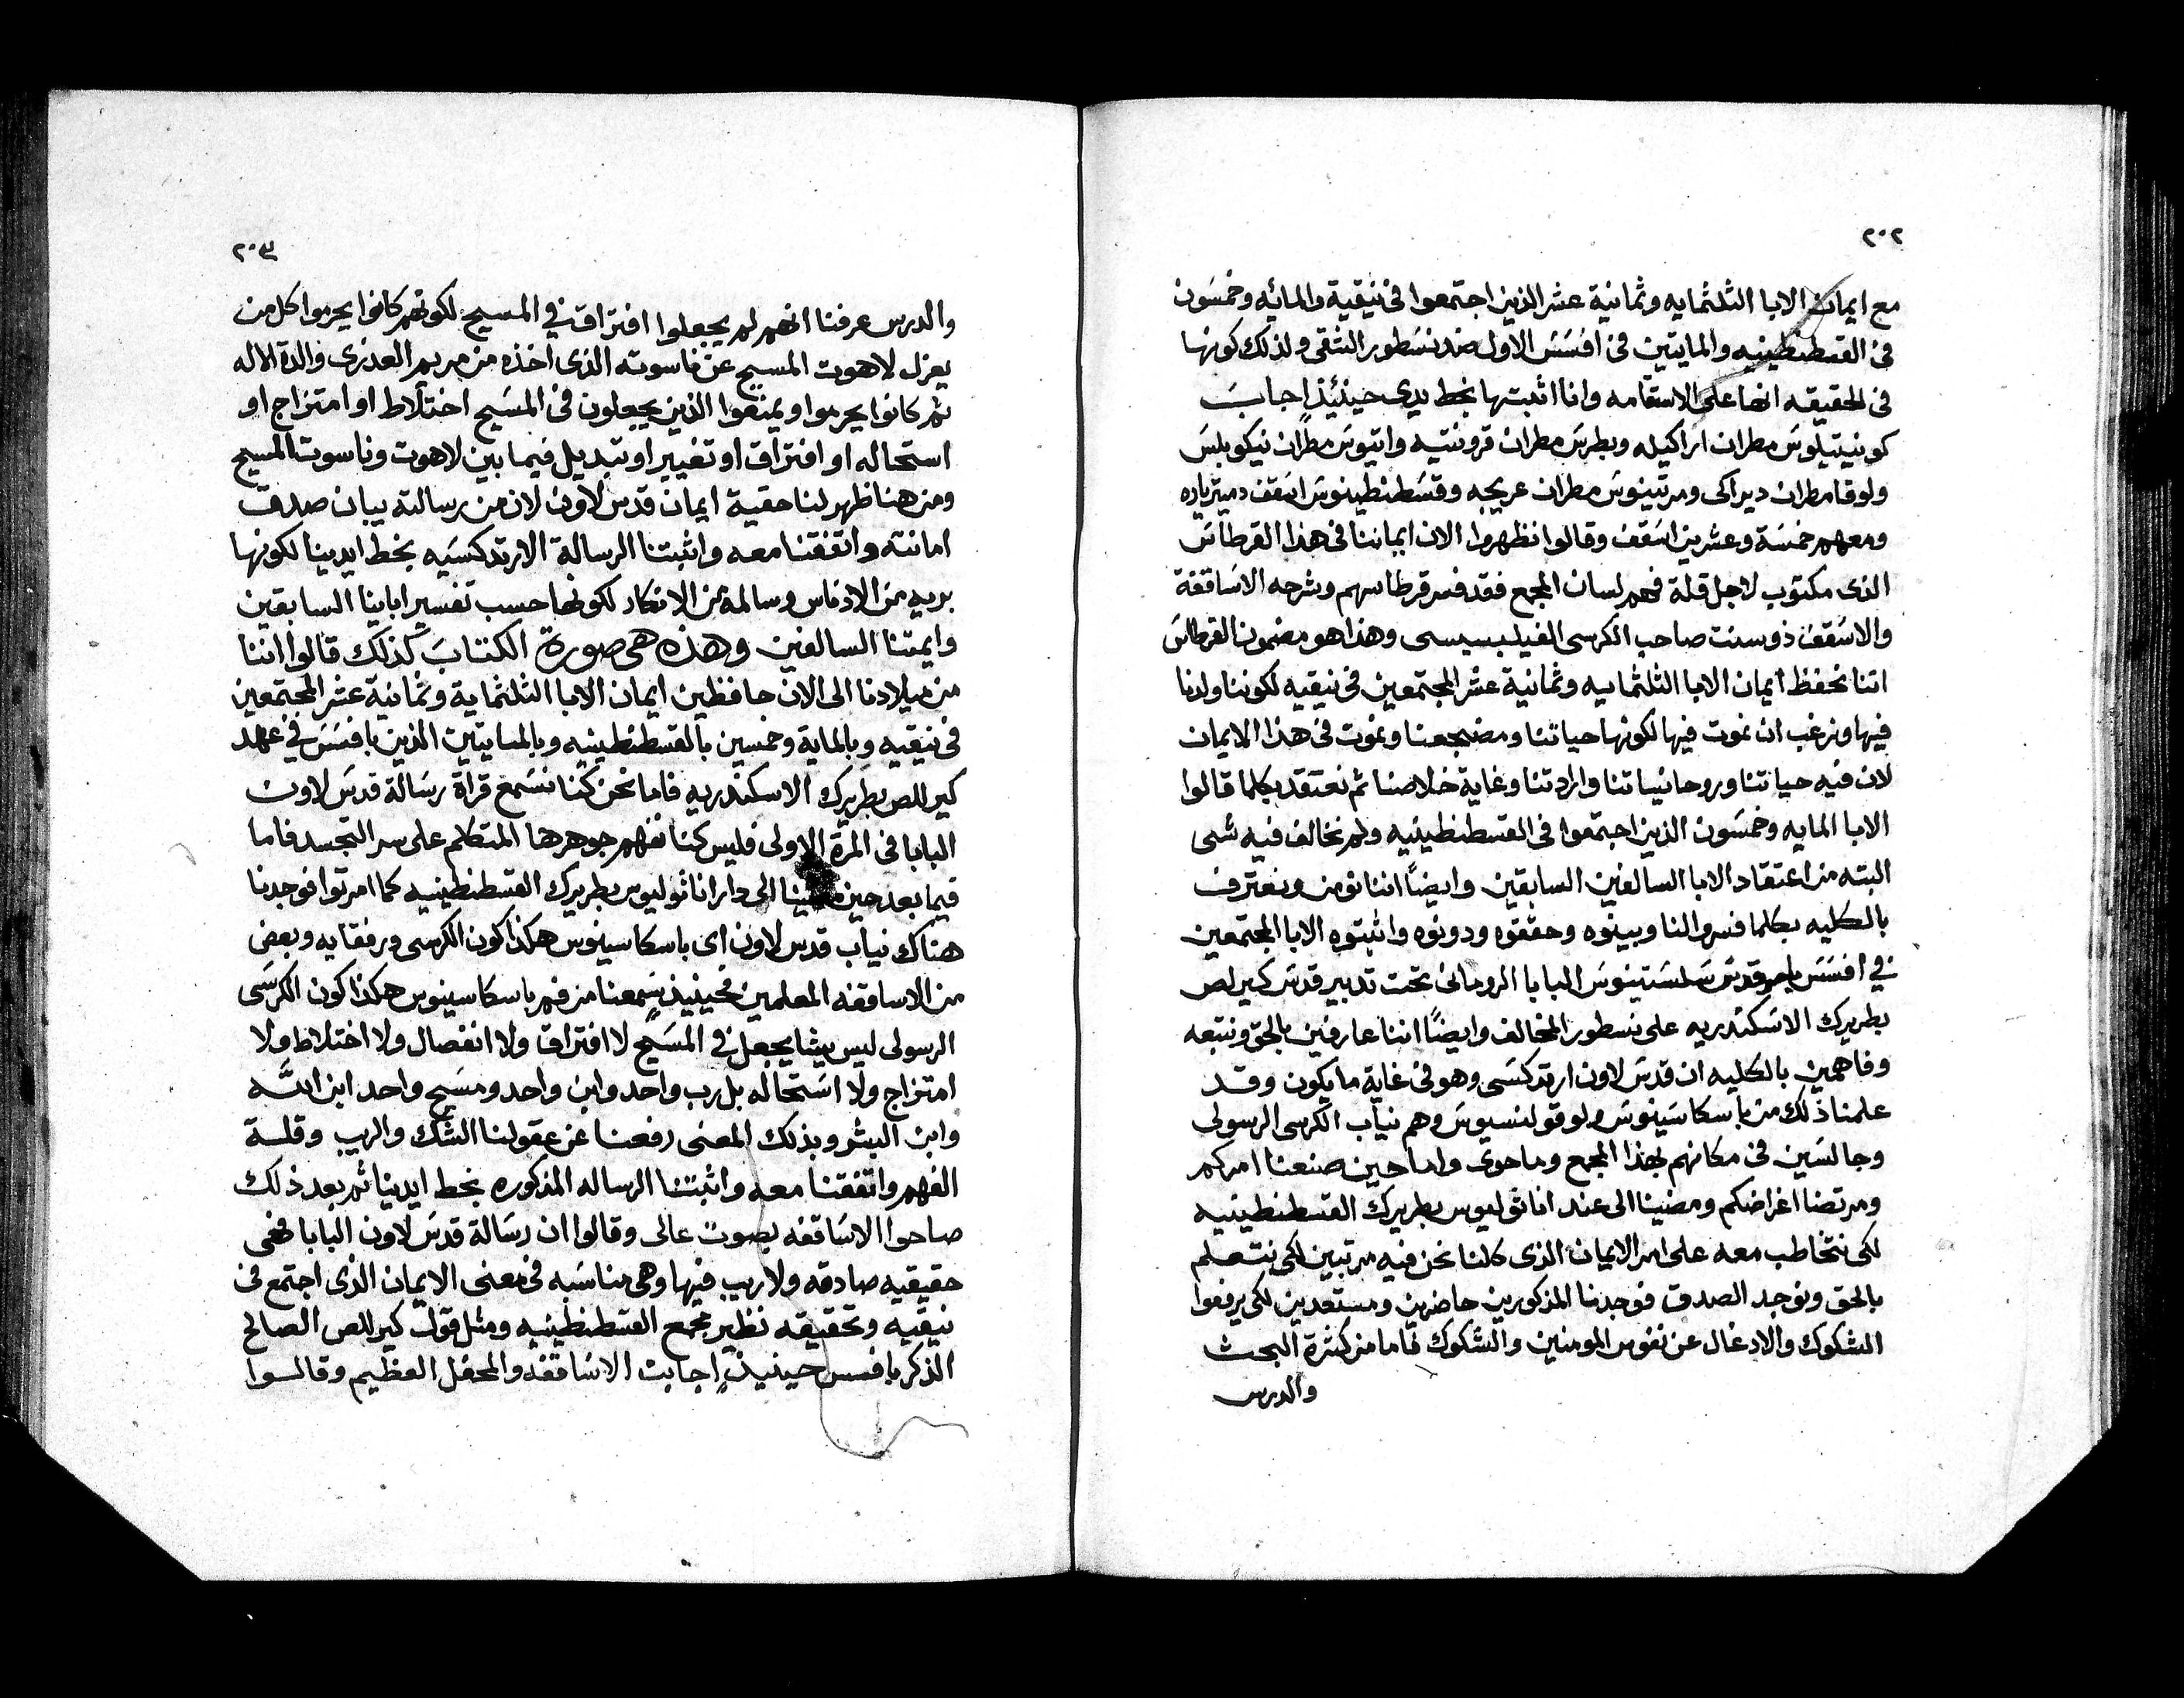 ٢٠٢
مع ايمان الابا الثلثمايه وثمانية عشر الذين اجتمعوا فى نيقية والمائه وخمسون
فى القسطنطينيه والمايتين فى افسس الاول ضد نسطور الشقى ولذلك كونها
فى الحقيقه انها على الاستقامه وانا اثبتها بخط يدى حينئيذٍ اجابت
كونيتيلوس مطران اراكيله وبطرس مطران قرونتيه واتيوس مطران نيكوبلس
ولوقا مطران ديراكى ومرتينوس مطران عريجه وقسطنطينوس اسقف دميترياره
ومعهم خمسة وعشرين اسقف وقالوا نظهروا الان ايماننا فى هذا القرطاس
الذى مكتوب لاجل قلة فهم لسان المجمع فقد فسر قرطاسهم وشرحه الاساقفة
والاسقف ذوسنت صاحب الكرسى الفيلبسيسى وهذا هو مضمون القرطاس
اننا نحفظ ايمان الابا الثلثمايه وثمانية عشر المجتمعين فى نيقيه لكوننا ولدنا
فيها ونرغب ان نموت فيها لكونها حياتنا ومضجعنا ونموت فى هذا الايمان
لان فيه حياتنا وروحانياتنا وارادتنا وغاية خلاصنا ثم نعتقد بكلما قالوا
الابا المايه وخمسون الذين اجتمعوا فى القسطنطينيه ولم نخالف فيه شى
البته من اعتقاد الابا السالفين السابقين وايضاً اننا نومن ونعترف
بالكليه بكلما فسروا لنا وبينوه وحققوه ودونوه واثبتوه الابا المجتمعين
فى افسس بامر قدس سلستينوس البابا الرومانى تحت تدبير قدس كيرلص
بطريرك الاسكندريه على نسطور المخالف وايضاً اننا عارفين بالحق ونتبعه
وفاهمين بالكليه ان قدس لاون ارتدكسى وهو فى غاية ما يكون وقد
علمنا ذلك من باسكاسينوس ولوقولنسيوس وهم نياب الكرسى الرسولى
وجالسين فى مكانهم بهذا المجمع وما حوى واما حين صنعنا امركم
ومرتضنا اغراضكم ومضينا الى عند اناثوليوس بطريرك القسطنطينيه
لكى نتخاطب معه على امر الايمان الذى كلنا نحن فيه مرتبين لكى نتعلم
بالحق ونوجد الصدق فوجدنا المذكورين حاضرين ومستعدين لكى يرفعوا
الشكوك والادغال عن نفوس المومنين والشكوك فاما من كثرة البحث
والدرس
٢٠٣
والدرس عرفنا انهم لم يجعلوا افتراق فى المسيح لكونهم كانوا يحرموا كل من
يعزل لاهوت المسيح عن ناسوته الذى اخذه من مريم العدرى والدة الاله
ثم كانوا يحرموا ويمنعوا الذين يجعلون فى المسيح اختلاط او امتزاج او
استحاله او افتراق او تغيير او تبديل فيما بين لاهوت وناسوت المسيح
ومن هنا ظهر لنا حقية ايمان قدس لاون لان من رسالته يبان صدق
امانته واتفقنا معه واثبتنا الرسالة الارتدكسيه بخط ايدينا لكونها
بريه من الادناس وسالمة من الانكار لكونها حسب تفسير اباينا السابقين
وايمتنا السالفين وهذه هى صورة الكتاب كذلك قالوا اننا
من ميلادنا الى الان حافظين ايمان الابا الثلثماية وثمانية عشر المجتمعين
فى نيقيه وبالماية وخمسين بالقسطنطينيه وبالمايتين الذين بافسس فى عهد
كيرللص بطريرك الاسكندريه فاما نحن كنا نسمع قراة رسالة قدس لاون
البابا فى المرة الاولى فليس كنا نفهم جوهرها المتكلم على سر التجسد فاما
فيما بعد حين الى دار اناثوليوس بطريرك القسطنطينيه كما امرتوا فوجدنا
هناك نياب قدس لاون اى باسكاسينوس هكذا كون الكرسى ورفقايه وبعض
من الاساقفه المعلمين فحينيذٍ سمعنا من فم باسكاسينوس هكذا كون الكرسى
الرسولى ليس يشا يجعل فى المسيح لا افتراق ولا انفصال ولا اختلاط ولا
امتزاج ولا استحاله بل رب واحد وابن واحد ومسيح واحد ابن الله
وابن البشر وبذلك المعنى رفعنا عن عقولنا الشك والريب وقلة
الفهم واتفقنا معه واثبتنا الرساله المذكوره بخط ايدينا ثم بعد ذلك
صاحوا الاساقفه بصوت عالى وقالوا ان رسالة قدس لاون البابا فهى
حقيقيه صادقه ولا ريب فيها وهى مناسبه فى معنى الايمان الذى اجتمع فى
نيقيه وتحقيقه نظير مجمع القسطنطينيه ومثل قول كيرللص الصالح
الذكر بافسس حينيذٍ اجابت الاساقفه والمحفل العظيم وقالوا